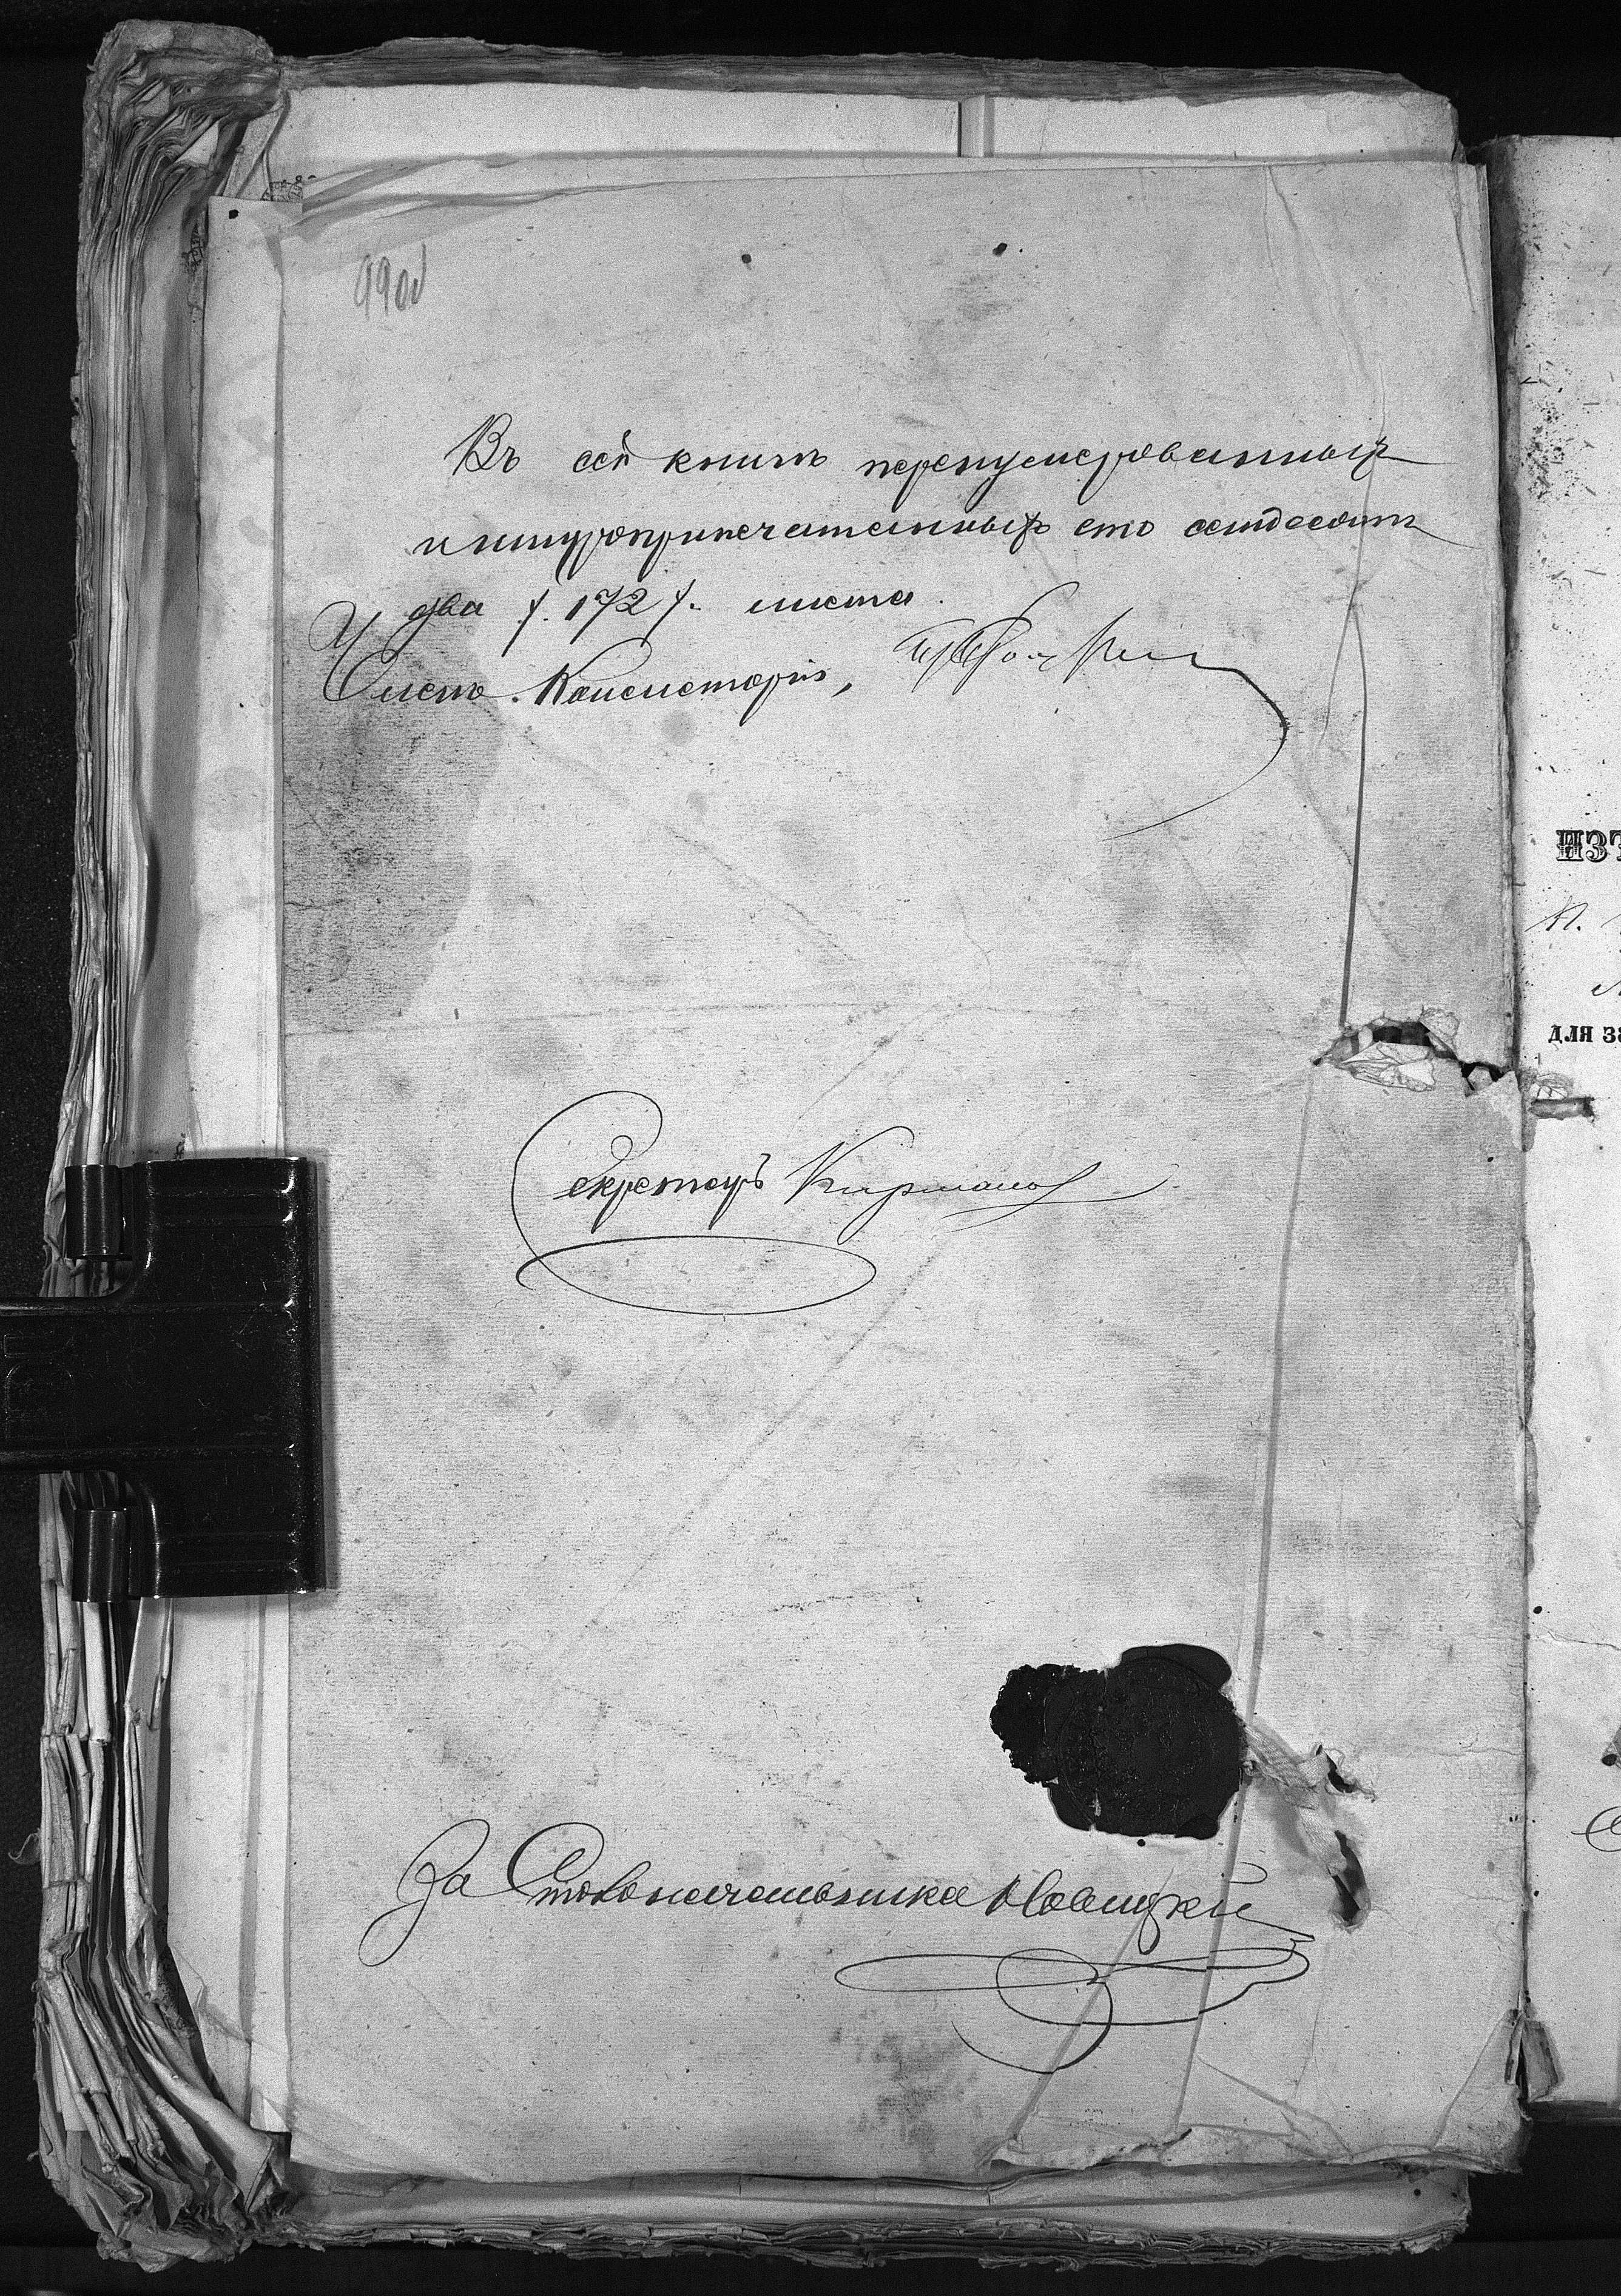 990об
Въ сей книгѣ перенумерованныхъ
и шнуроприпечатанныхъ сто семдесятъ
два /. 172 /. листа.
Членъ Консисторіи,
Секретарь
За Столоначальника Новицкій
ИЗЪ
ДЛЯ ЗА